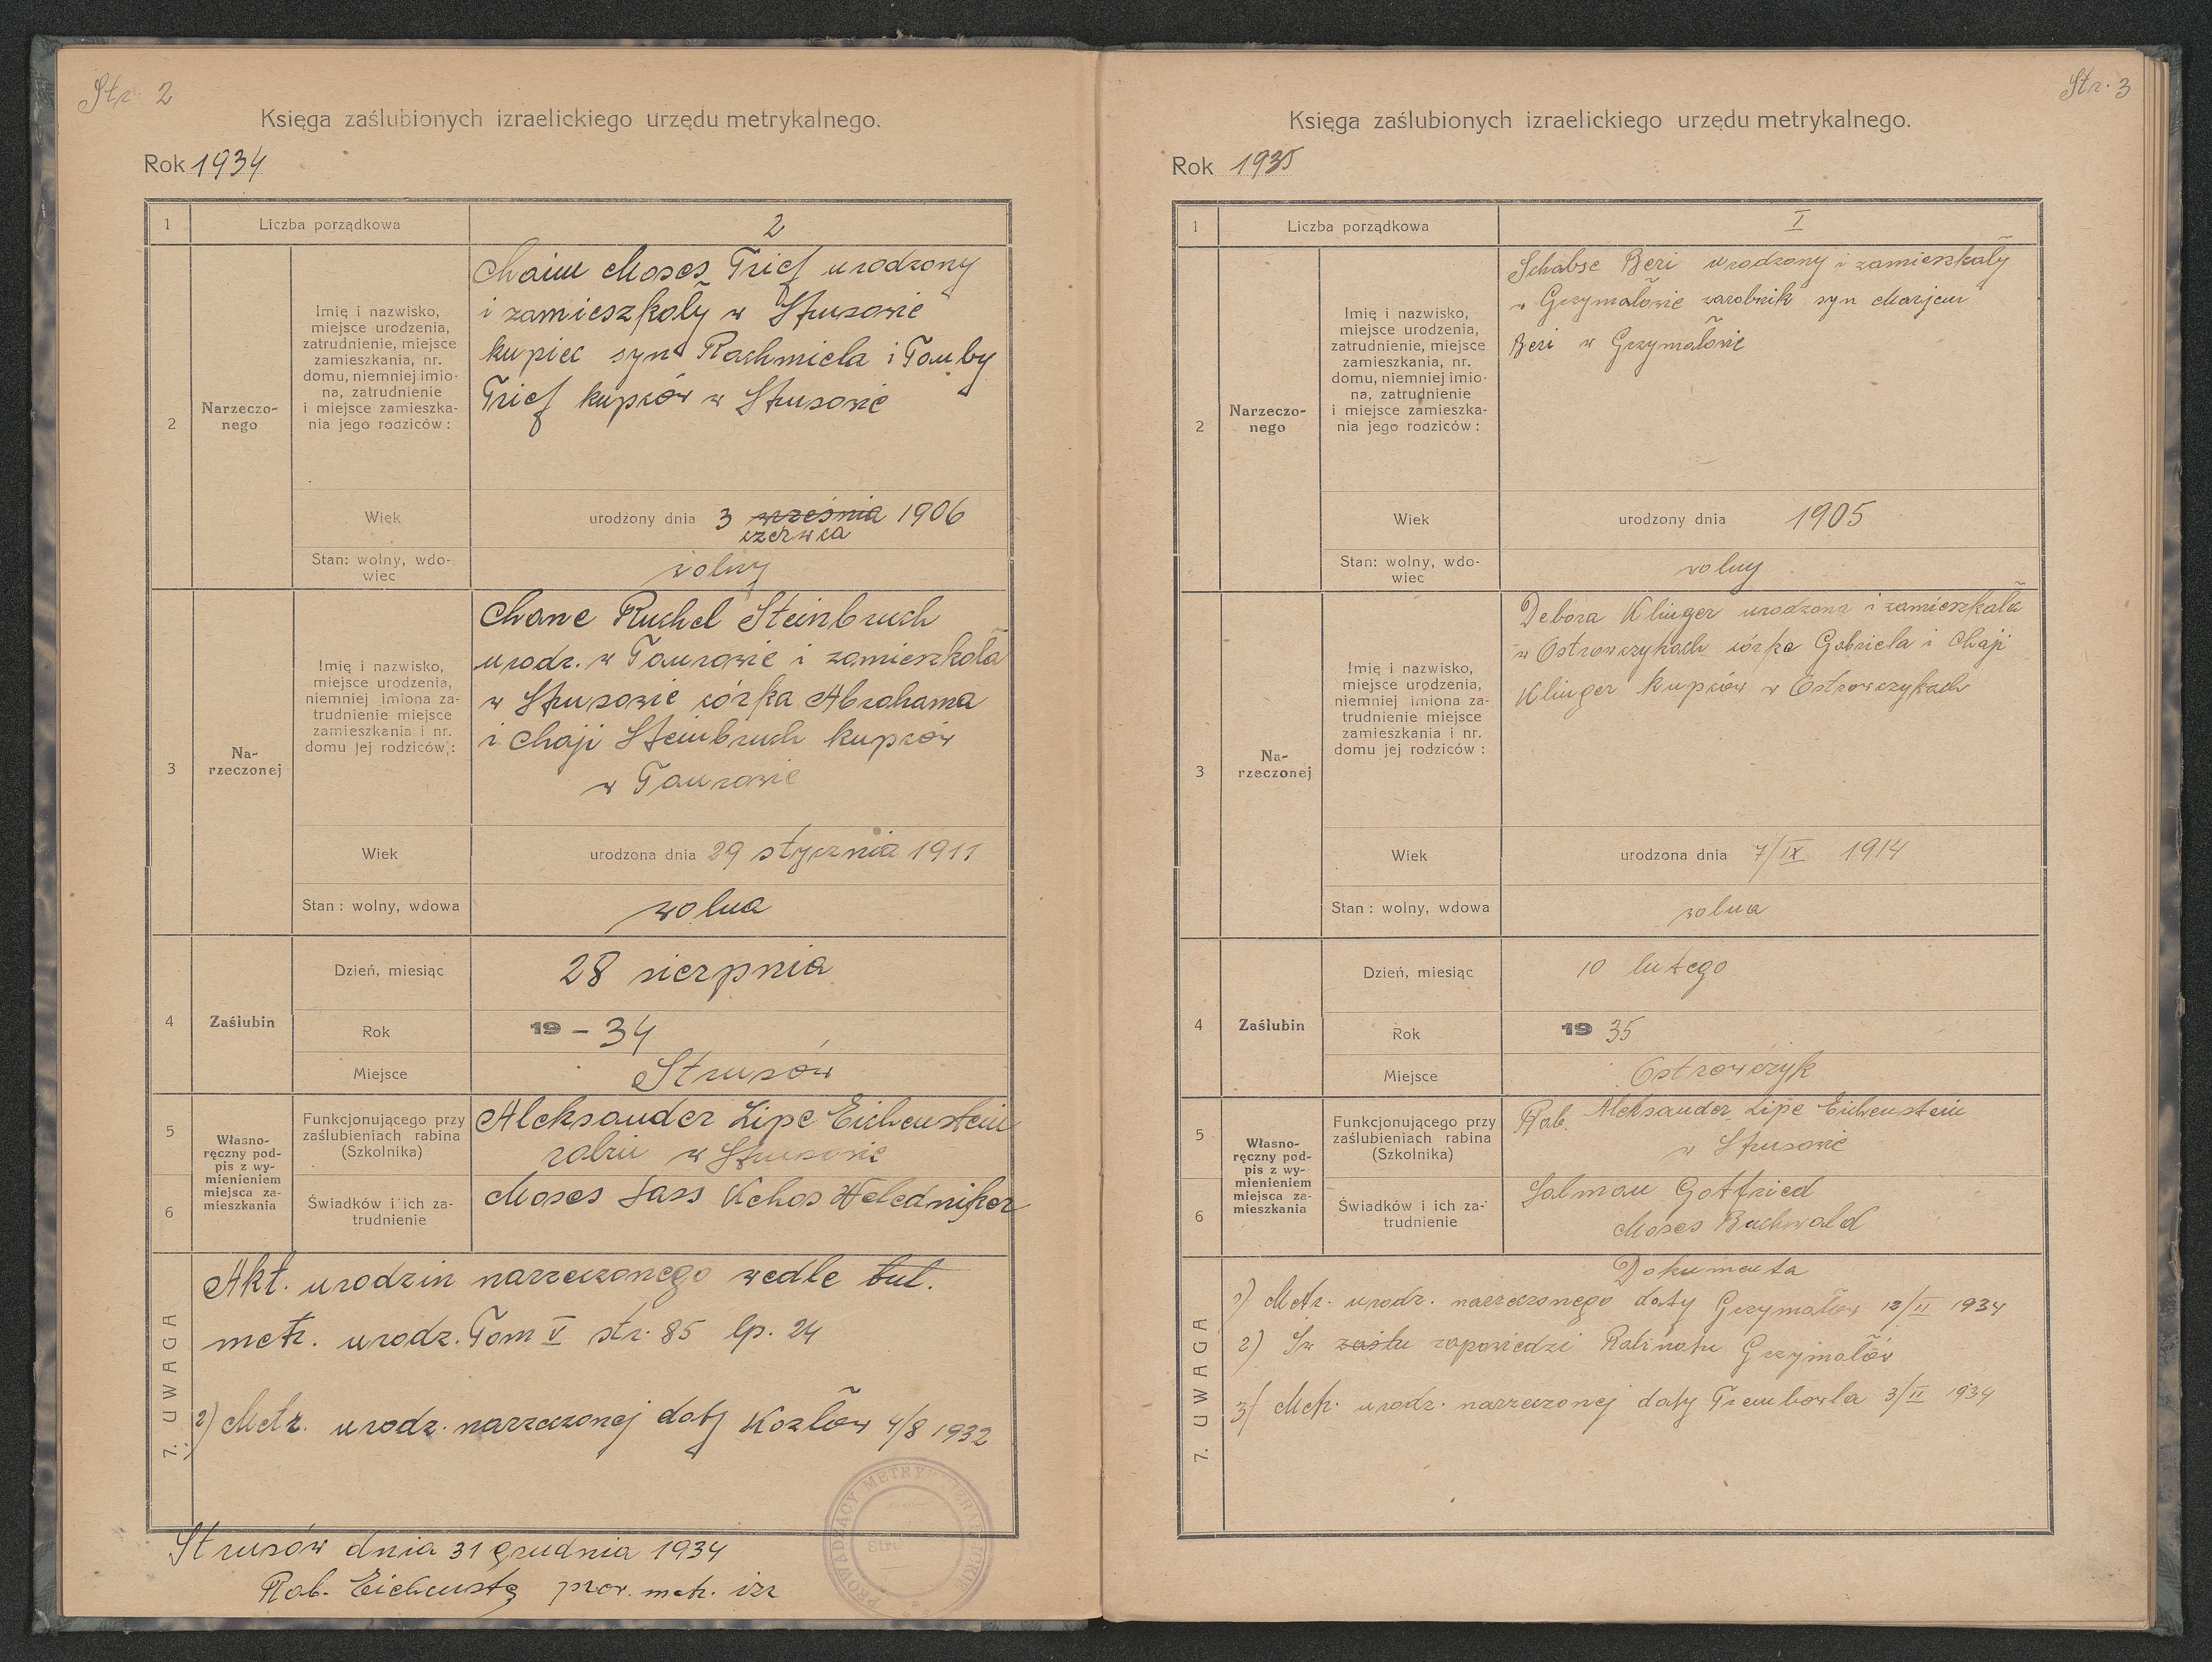 Str. 2
Księga zaślubionych izraelickiego urzędu metrykalnego.
Rok 1934
1 Liczba porządkowa 2
2
Narzeczo-
nego
Imię i nazwisko,
miejsce urodzenia,
zatrudnienie, miejsce
zamieszkania, nr.
domu, niemniej imio-
na, zatrudnienie
i miejsce zamieszka-
nia jego rodziców :
Chaim Moses Trief urodzony
i zamieszkały w Strusowie
kupiec syn Rachmiela i Tauby
Trief kupców w Strusowie
Wiek urodzony dnia 3 września 1906
czerwca
Stan: wolny, wdo-
wiec
wolny
3
Na-
rzeczonej
Imię i nazwisko,
miejsce urodzenia,
niemniej imiona za-
trudnienie miejsce
zamieszkania i nr.
domu jej rodziców :
Chane Ruchel Steinbruch
urodz. w Taurowie i zamieszkała
w Strusowie córka Abrahama
i Chaji Steinbruch kupców
w Taurowie
Wiek urodzona dnia 29 stycznia 1911
Stan : wolny, wdowa wolna
4
Zaślubin
Dzień, miesiąc 28 sierpnia
Rok 19 – 34
Miejsce Strusów
5
6
Własno-
ręczny pod-
pis z wy-
mienieniem
miejsca za-
mieszkania
Funkcjonującego przy
zaślubieniach rabina
(Szkolnika)
Aleksander Lipe Eichenstein
rabin w Strusowie
Świadków i ich za-
trudnienie
Moses Sass
7. UWAGA
Akt. urodzin narzeczonego wedle tut.
metr. urodz. Tom V str. 85 lp. 24
2) Metr. urodz. narzeczonej daty Kozłów 4/8 1932
Strusów dnia 31 grudnia 1934
Rab. prow. metr. izr
PROWADZĄCY METRYKI IZRAELICKIE
Str. 3
Księga zaślubionych izraelickiego urzędu metrykalnego.
Rok 1935
1 Liczba porządkowa I
2
Narzeczo-
nego
Imię i nazwisko,
miejsce urodzenia,
zatrudnienie, miejsce
zamieszkania, nr.
domu, niemniej imio-
na, zatrudnienie
i miejsce zamieszka-
nia jego rodziców :
Schabse Beri urodzony i zamieszkały
w Grzymałowie zarobnik syn Marjem
Beri w Grzymałowie
Wiek urodzony dnia 1905
Stan: wolny, wdo-
wiec
wolny
3
Na-
rzeczonej
Imię i nazwisko,
miejsce urodzenia,
niemniej imiona za-
trudnienie miejsce
zamieszkania i nr.
domu jej rodziców :
Debora Klinger urodzona i zamieszkała
w Ostrowczykach córka Gabriela i Chaji
Klinger kupców w Ostrowczykach
Wiek urodzona dnia 7/IX 1914
Stan : wolny, wdowa wolna
4
Zaślubin
Dzień, miesiąc 10 lutego
Rok 19 35
Miejsce Ostrowczyk
5
6
Własno-
ręczny pod-
pis z wy-
mienieniem
miejsca za-
mieszkania
Funkcjonującego przy
zaślubieniach rabina
(Szkolnika)
Rab. Aleksander Lipe Eichenstein
w Strusowie
Świadków i ich za-
trudnienie
Salman Gottfried
Moses Buchwald
7. UWAGA
Dokumenta
1) Metr. urodz. narzeczonego daty Grzymałów 12/II 1934
2) Św zaślu zapowiedzi Rabinatu Grzymałów
3) Metr. urodz. narzeczonej daty Trembowla 3/II 1934